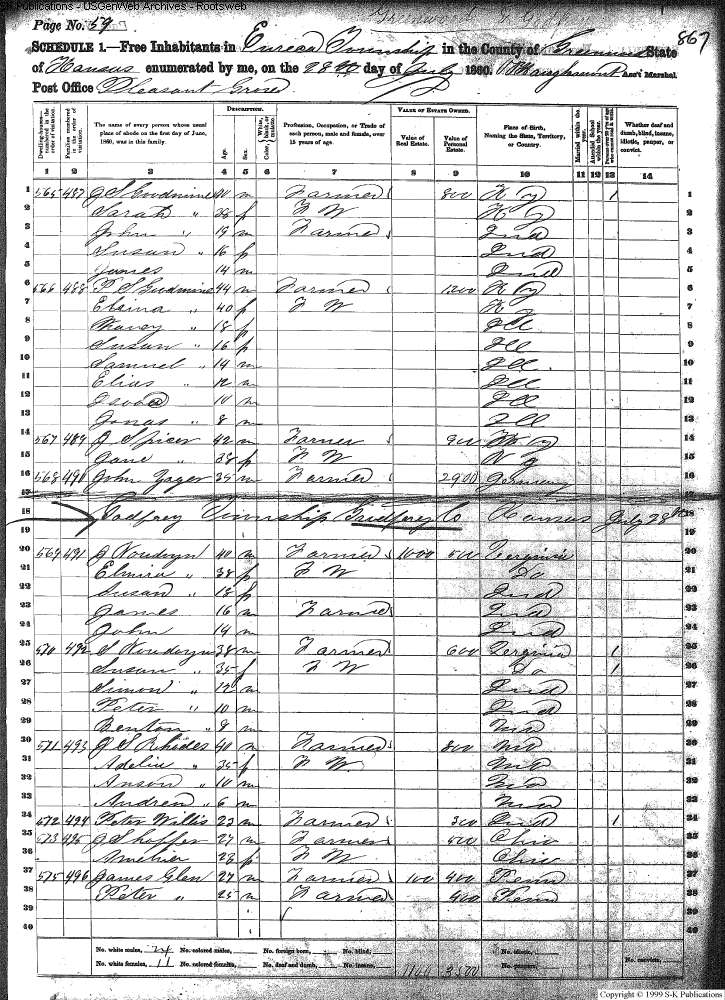 Publications - USGenWeb Archives - Rootsweb
Page No. 59
867
SCHEDULE 1.—Free Inhabitants in Eureca Township in the County of Greenwood State
of Kansas enumerated by me, on the 28th day of July 1860. Ass't Marshal
Post Office Pleasant Grove
Dwelling-houses—numbered in the order of visitation.
Families numbered in the order of visitation.
The name of every person whose usual place of abode on the first day of June, 1860, was in this family.
DESCRIPTION.
Age.
Sex.
Color, White, black, or mulatto.
Profession, Occupation, or Trade of each person, male and female, over 15 years of age.
VALUE OF ESTATE OWNED.
Value of Real Estate.
Value of Personal Estate.
Place of Birth, Naming the State, Territory, or Country.
Married within the year.
Attended School within the year.
Persons over 20 y'rs of age who cannot read & write.
Whether deaf and dumb, blind, insane, idiotic, pauper, or convict.
1 2 3 4 5 6 7 8 9 10 11 12 13 14
1 565 487 J S 40 m Farmer 800 Ky 1 1
2 Sarah " 38 f H W Ky 2
3 John " 19 m Farmer Ind 3
4 Susan " 16 f Ind 4
5 James 14 m Ind 5
6 566 488 44 m Farmer 1200 Ky 6
7 " 40 f H W Ky 7
8 " 18 f Ill 8
9 Susan " 16 f Ill 9
10 Samuel " 14 m Ill 10
11 Elias " 12 m Ill 11
12 " 10 m Ill 12
13 Jonas " 8 m Ill 13
14 567 489 J Spicer 42 m Farmer 900 Ky 14
15 Jane " 38 f H W 15
16 568 490 John Yager 35 m Farmer 2900 Germany 16
17
18 Godfrey Township Godfrey Co Kansas July 28th 18
19
20 569 491 J 40 m Farmer 1000 500 Verginia 20
21 Elmira " 38 f H W Do 21
22 Susan " 18 f Ind 22
23 James 16 m Farmer Ind 23
24 John 14 m Ind 24
25 570 492 S 38 m Farmer 600 Verginia 1 25
26 Susan " 35 f H W Do 1 26
27 Simon " 12 m Ind 27
28 Peter " 10 m Ind 28
29 Benton " 8 m 29
30 571 493 J S Rhodes 40 m Farmer 800 30
31 Adelia " 35 f H W 31
32 Anson " 10 m 32
33 Andrew " 6 m 33
34 572 494 Peter Willis 23 m Farmer 300 Ind 1 34
35 573 495 J Shoffer 27 m Farmer 500 Ohio 35
36 " 23 f H W Ohio 36
37 575 496 James Glen 27 m Farmer 100 400 Penn 37
38 Peter " 25 m Farmer 400 Penn 38
39 39
40 40
No. white males, 24 No. colored males, No. foreign born, No. blind, No. idiotic,
No. white females, 11 No. colored females, No. deaf and dumb, No. insane, 1100 No. paupers, No. convicts,
Copyright © 1999 S-K Publications